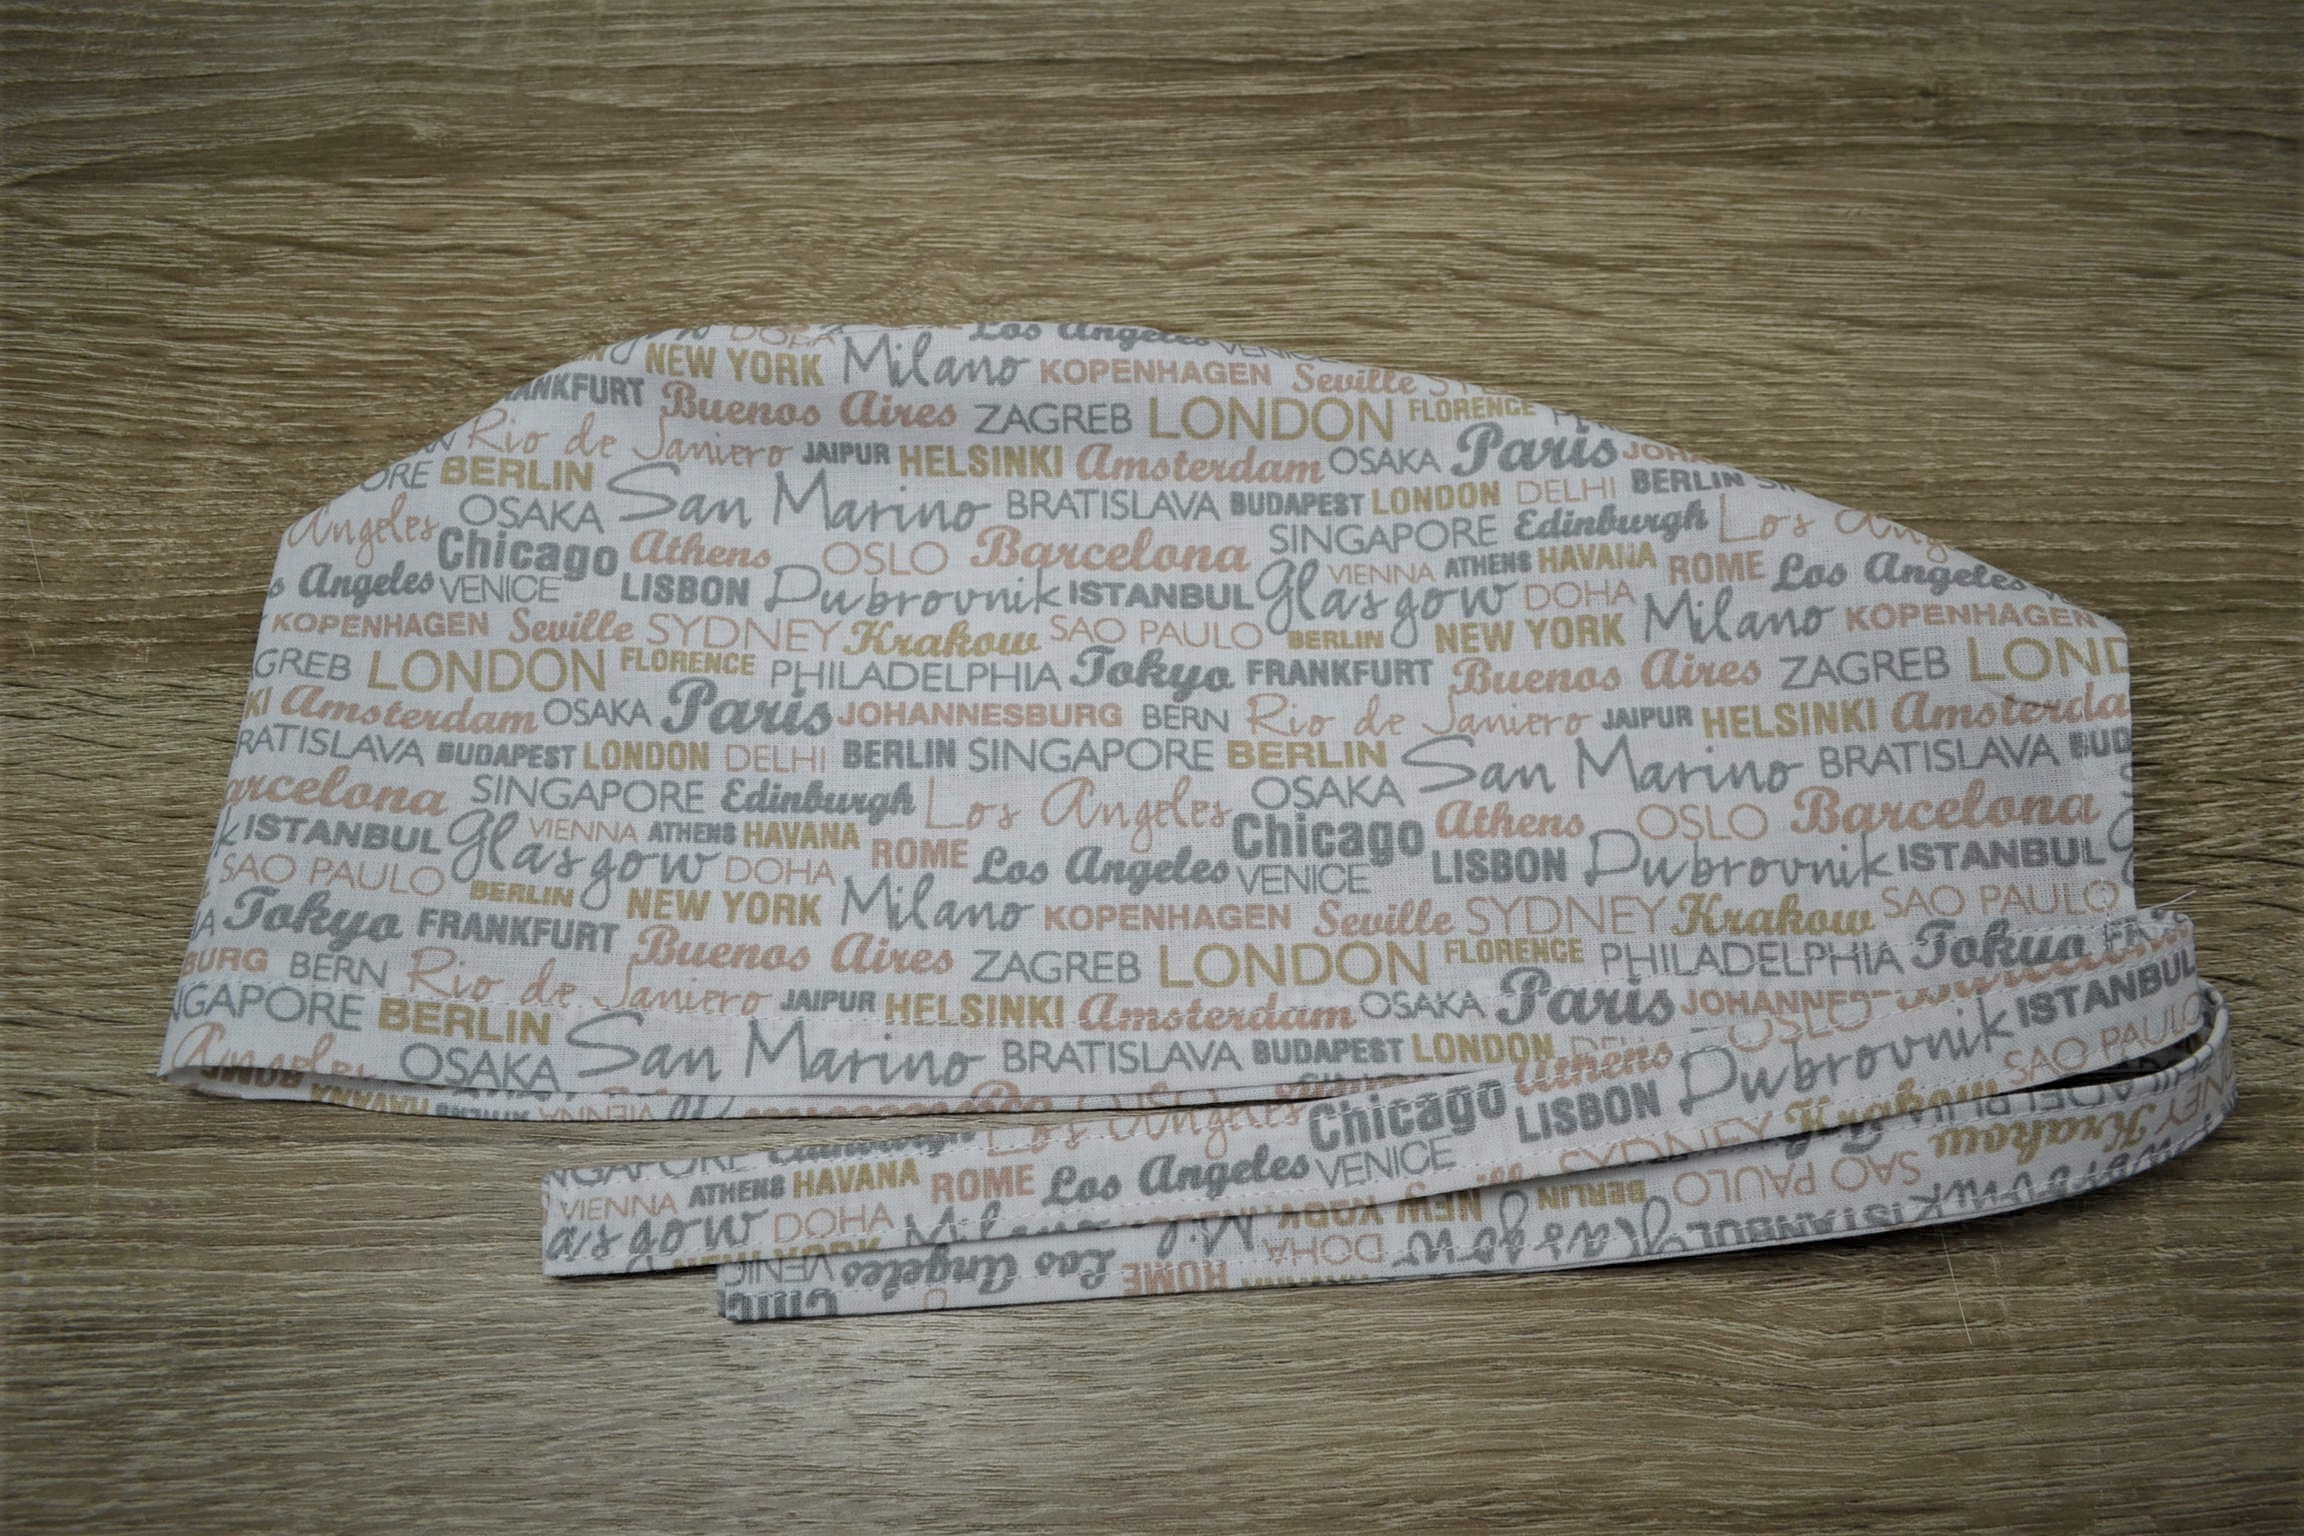 DOHA Los Angeles VENICE
NEW YORK Milano KOPENHAGEN Seville
Buenos Aires ZAGREB LONDON FLORENCE
Rio de Janiero JAIPUR HELSINKI Amsterdam OSAKA Paris
BERLIN San Marino BRATISLAVA BUDAPEST LONDON DELHI BERLIN
Angeles OSAKA SINGAPORE Edinburgh Los
Chicago Athens OSLO Barcelona VIENNA ATHENS HAVANA ROME Los Angeles
Angeles VENICE LISBON Dubrovnik ISTANBUL Glasgow DOHA Milano KOPENHAGEN
KOPENHAGEN Seville SYDNEY Krakow SAO PAULO BERLIN NEW YORK
GREB LONDON FLORENCE PHILADELPHIA Tokyo FRANKFURT Buenos Aires ZAGREB LOND
KI Amsterdam OSAKA Paris JOHANNESBURG BERN Rio de Janiero JAIPUR HELSINKI Amsterda
RATISLAVA BUDAPEST LONDON DELHI BERLIN SINGAPORE BERLIN San Marino BRATISLAVA BUD
arcelona SINGAPORE Edinburgh Los Angeles OSAKA Athens OSLO Barcelona
k ISTANBUL Glasgow VIENNA ATHENS HAVANA ROME Los Angeles Chicago VENICE LISBON Dubrovnik ISTANBUL
SAO PAULO BERLIN DOHA NEW YORK Milano KOPENHAGEN Seville SYDNEY Krakow SAO PAULO
Tokyo FRANKFURT Buenos Aires ZAGREB LONDON FLORENCE PHILADELPHIA Tokyo
BURG BERN Rio de Janiero JAIPUR HELSINKI Amsterdam OSAKA Paris
NGAPORE BERLIN San Marino BRATISLAVA BUDAPEST LONDON
OSAKA
Los Angeles Chicago Athens OSLO Dubrovnik ISTANBUL
VIENNA ATHENS HAVANA ROME Los Angeles VENICE LISBON SAO PAULO
asgow DOHA
Krakow
SAO PAULO BERLIN NEW YORK
ISTANBUL Glasgow DOHA
ROME Los Angeles